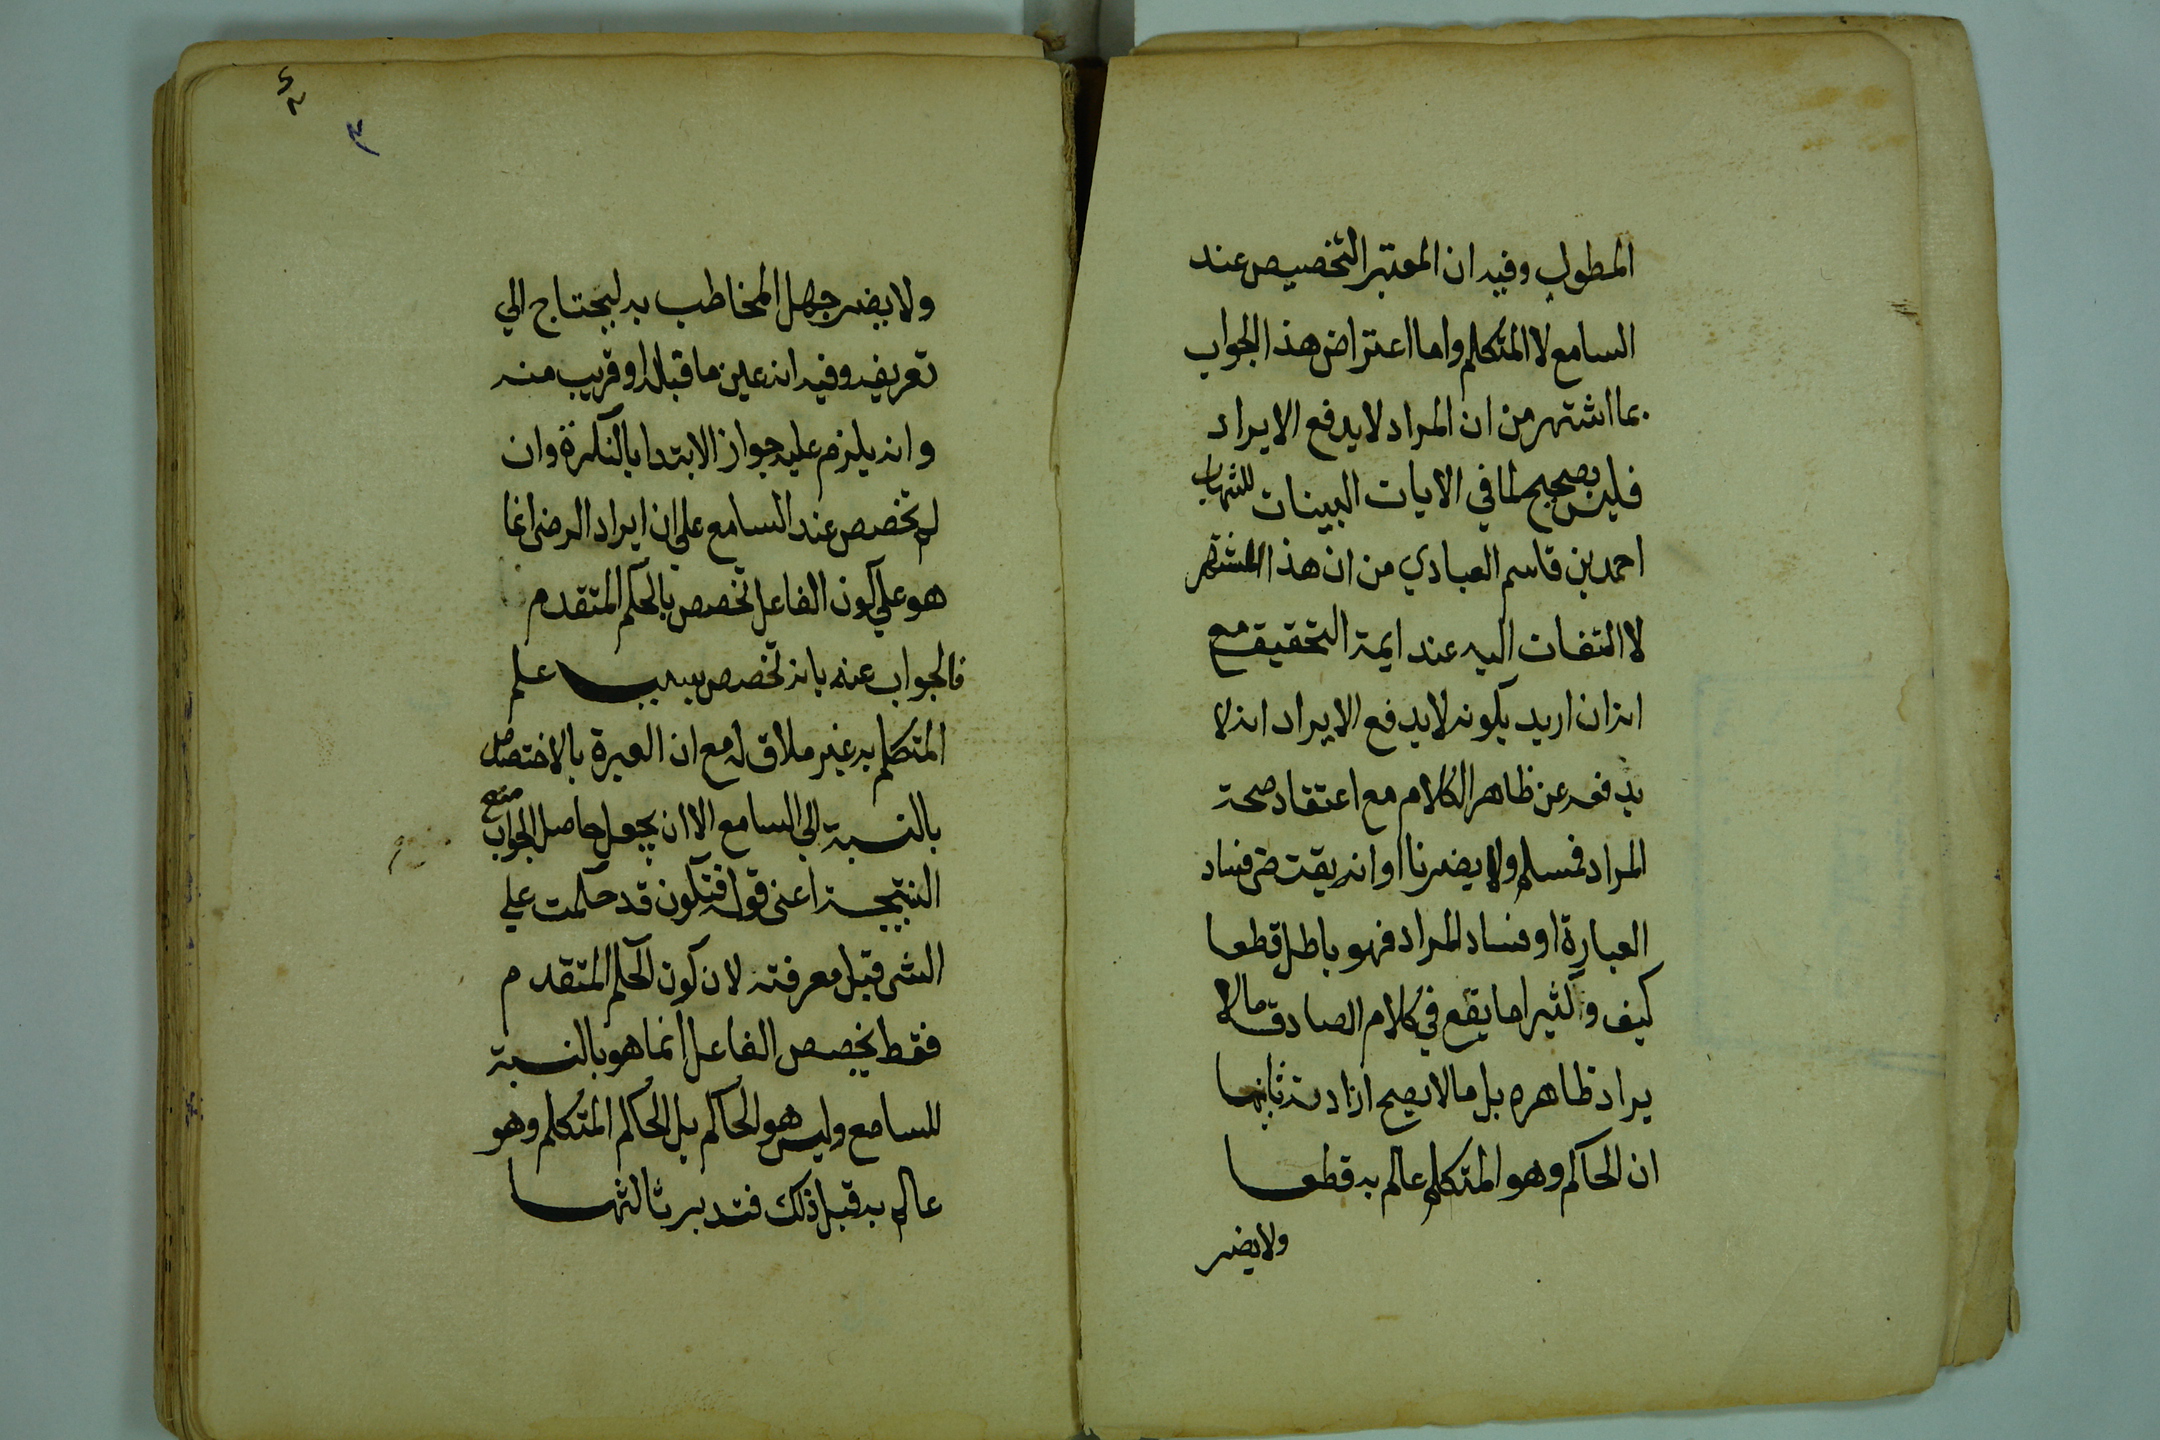 المطول وفيه ان المعتبر التخصيص عند
السامع لا المتكلم واما اعتراض هذا الجواب
بما اشتهر من ان المراد لا يدفع الايراد
فليس بصحيح لما في الايات البينات للشهاب
احمد بن قاسم العبادي من ان هذا المشتهر
لا التفات اليه عند ايمة التحقيق مع
انه ان اريد بكونه لا يدفع الايراد انه لا
يدفعه عن ظاهر الكلام مع اعتقاد صحة
المراد فمسلم ولا يضرنا او انه يقتضي فساد
العبارة او فساد المراد فهو باطل قطعا
كيف وكثيرا ما يقع في كلام الصادق ما لا
يراد ظاهره بل ما لا يصح ارادته ثانيها
ان الحاكم وهو المتكلم عالم به قطعا
ولا يضر
٣
ولا يضر جهل المخاطب به ليحتاج الي
تعريفه وفيه انه عين ما قبله او قريب منه
وانه يلزم عليه جواز الابتدا بالنكرة وان
لم تخصص عند السامع علي ان ايراد الرضي انما
هو علي كون الفاعل تخصص بالحكم المتقدم
فالجواب عنه بانه تخصص بسبب علم
المتكلم به غير ملاق له مع ان العبرة بالاختصاص
بالنسبة الي السامع الا ان يجعل حاصل الجواب منع
النتيجة اعني قوله فتكون قد حكمت علي
الشي قبل معرفته لان كون الحكم المتقدم
فقط يخصص الفاعل انما هو بالنسبة
للسامع وليس هو الحاكم بل الحاكم المتكلم وهو
عالم به قبل ذلك فتدبر ثالثها